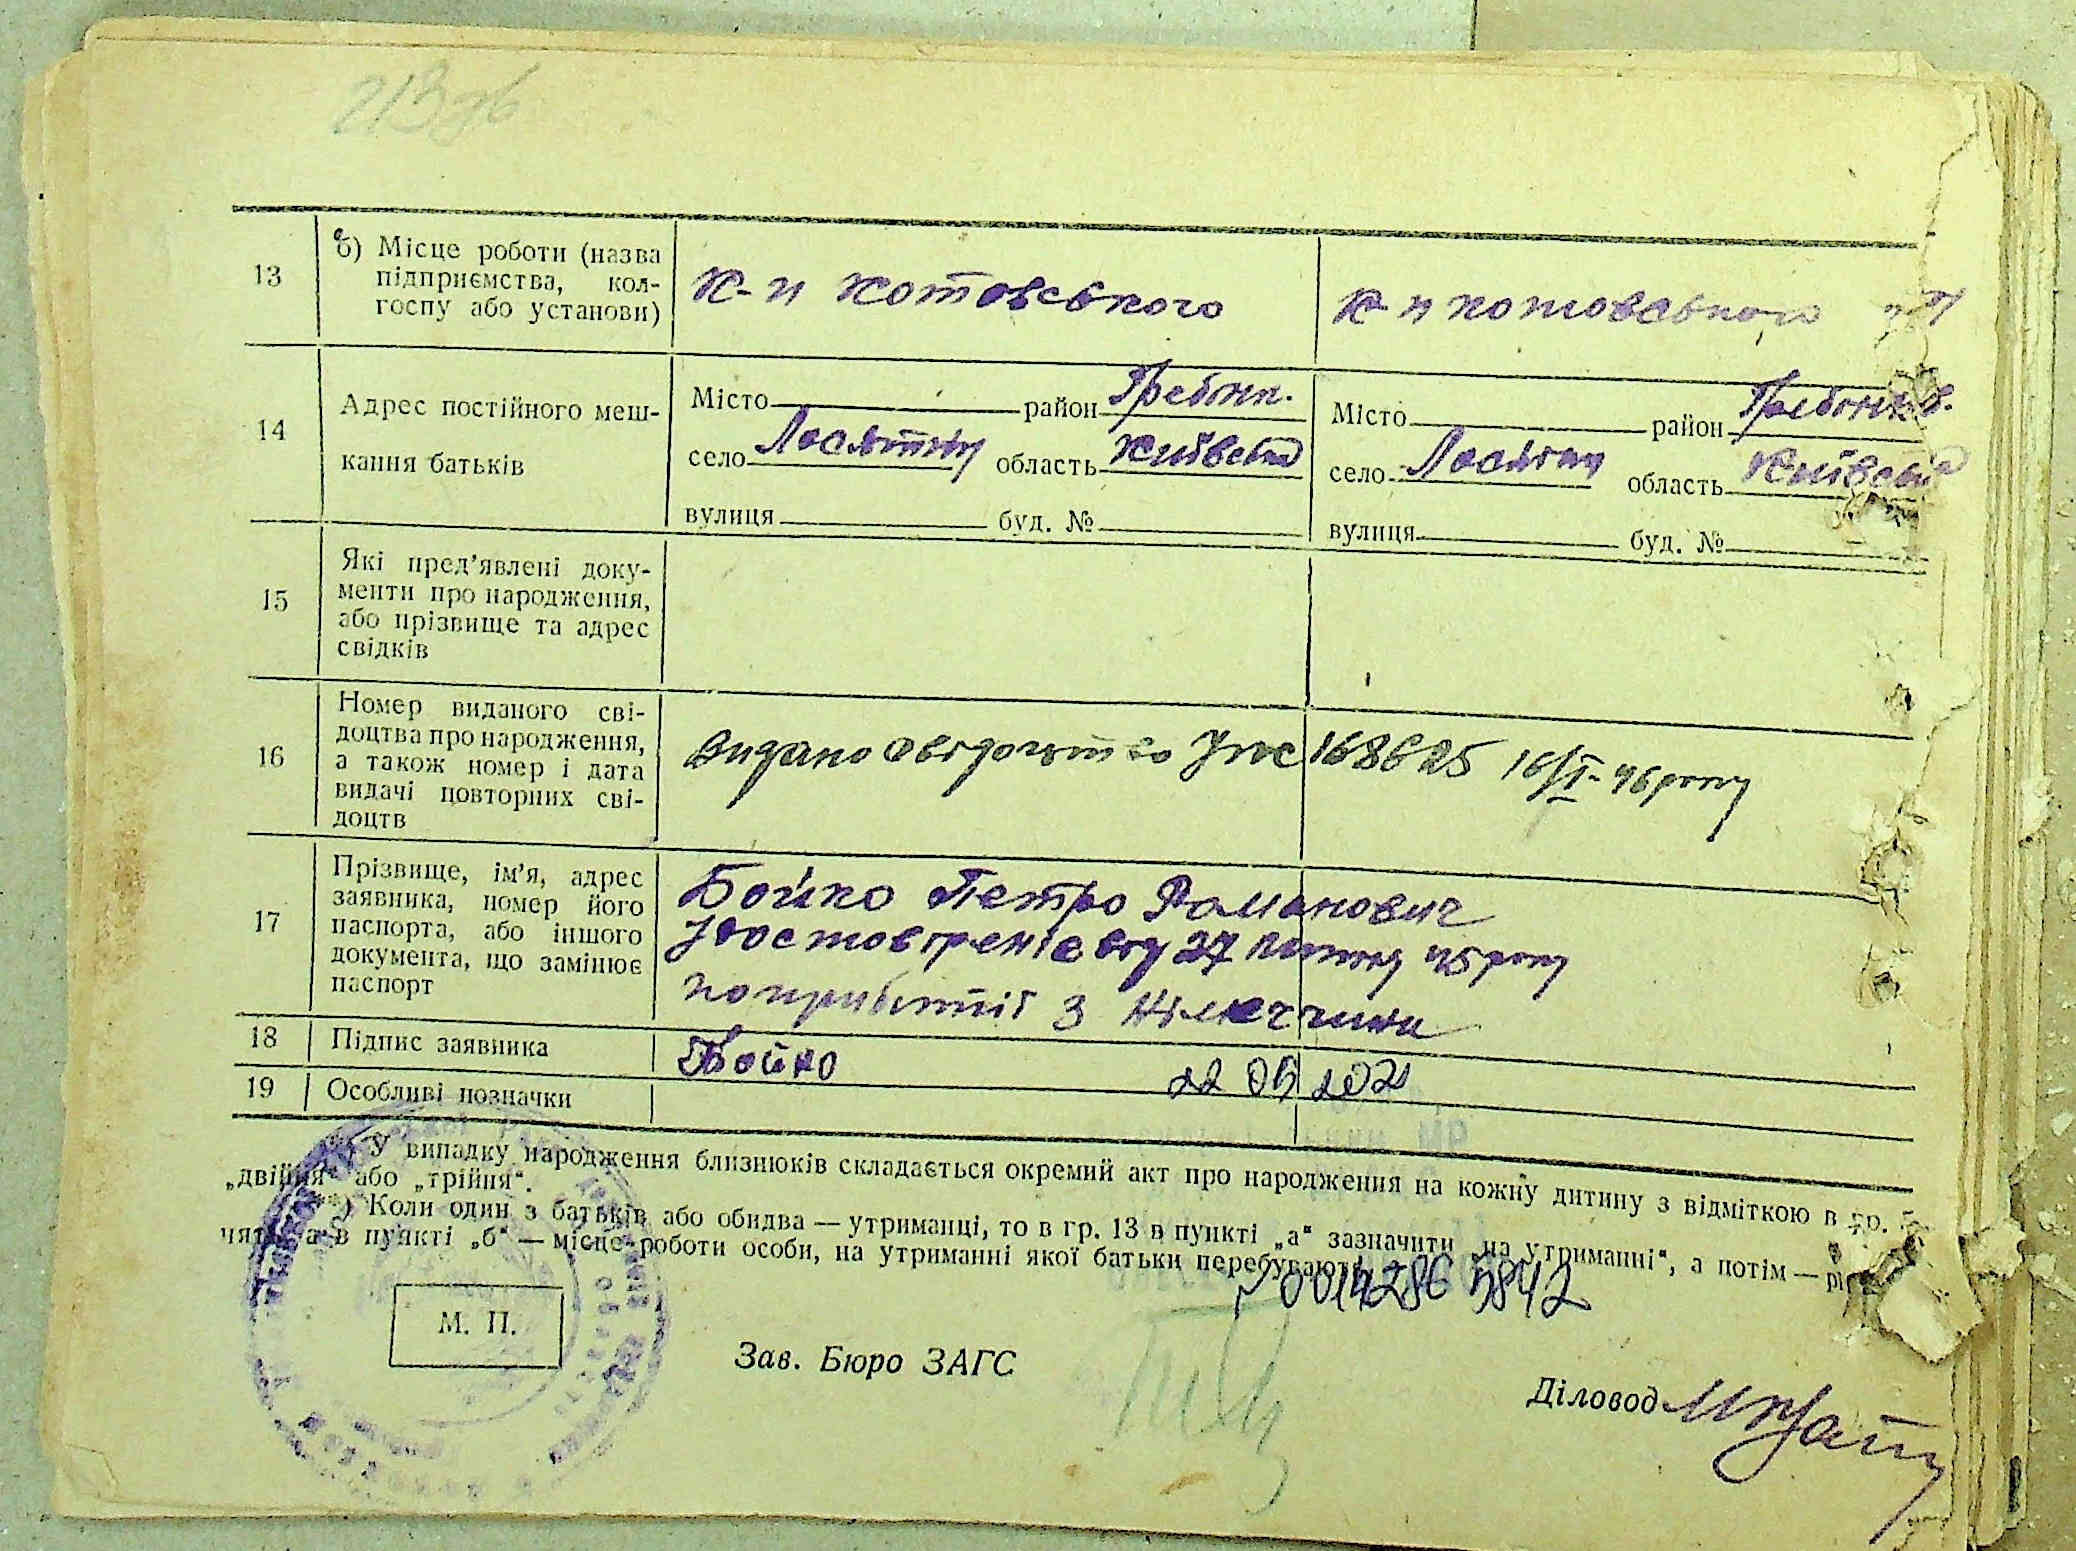 213 зв
13 б) Місце роботи (назва
підприємства, кол-
госпу або установи)
к-п Котовського
к-п Котовського
14 Адрес постійного меш-
кання батьків
Місто район Гребінк.
село Лосятин область Київська
вулиця буд. №
Місто район Гребінків.
село Лосятин область Київська
вулиця буд. №
15 Які пред’явлені доку-
менти про народження,
або прізвище та адрес
свідків
16 Номер виданого сві-
доцтва про народження,
а також номер і дата
видачі повторних сві-
доцтв
видано свідоцтво 168625 16/I-46 року
17 Прізвище, ім’я, адрес
заявника, номер його
паспорта, або іншого
документа, що замінює
паспорт
Бойко Петро Романович
від 27 45 року
по прибытії з Німеччини
18 Підпис заявника
Бойко
19 Особливі позначки
*) У випадку народження близнюків складається окремий акт про народження на кожну дитину з відміткою в гр. 5
„двійня“ або „трійня“.
**) Коли один з батьків або обидва — утриманці, то в гр. 13 в пункті „а“ зазначити „на утриманні“, а потім —
а в пункті „б“ — місце роботи особи, на утриманні якої батьки перебувають.
М. П.
Зав. Бюро ЗАГС
Діловод